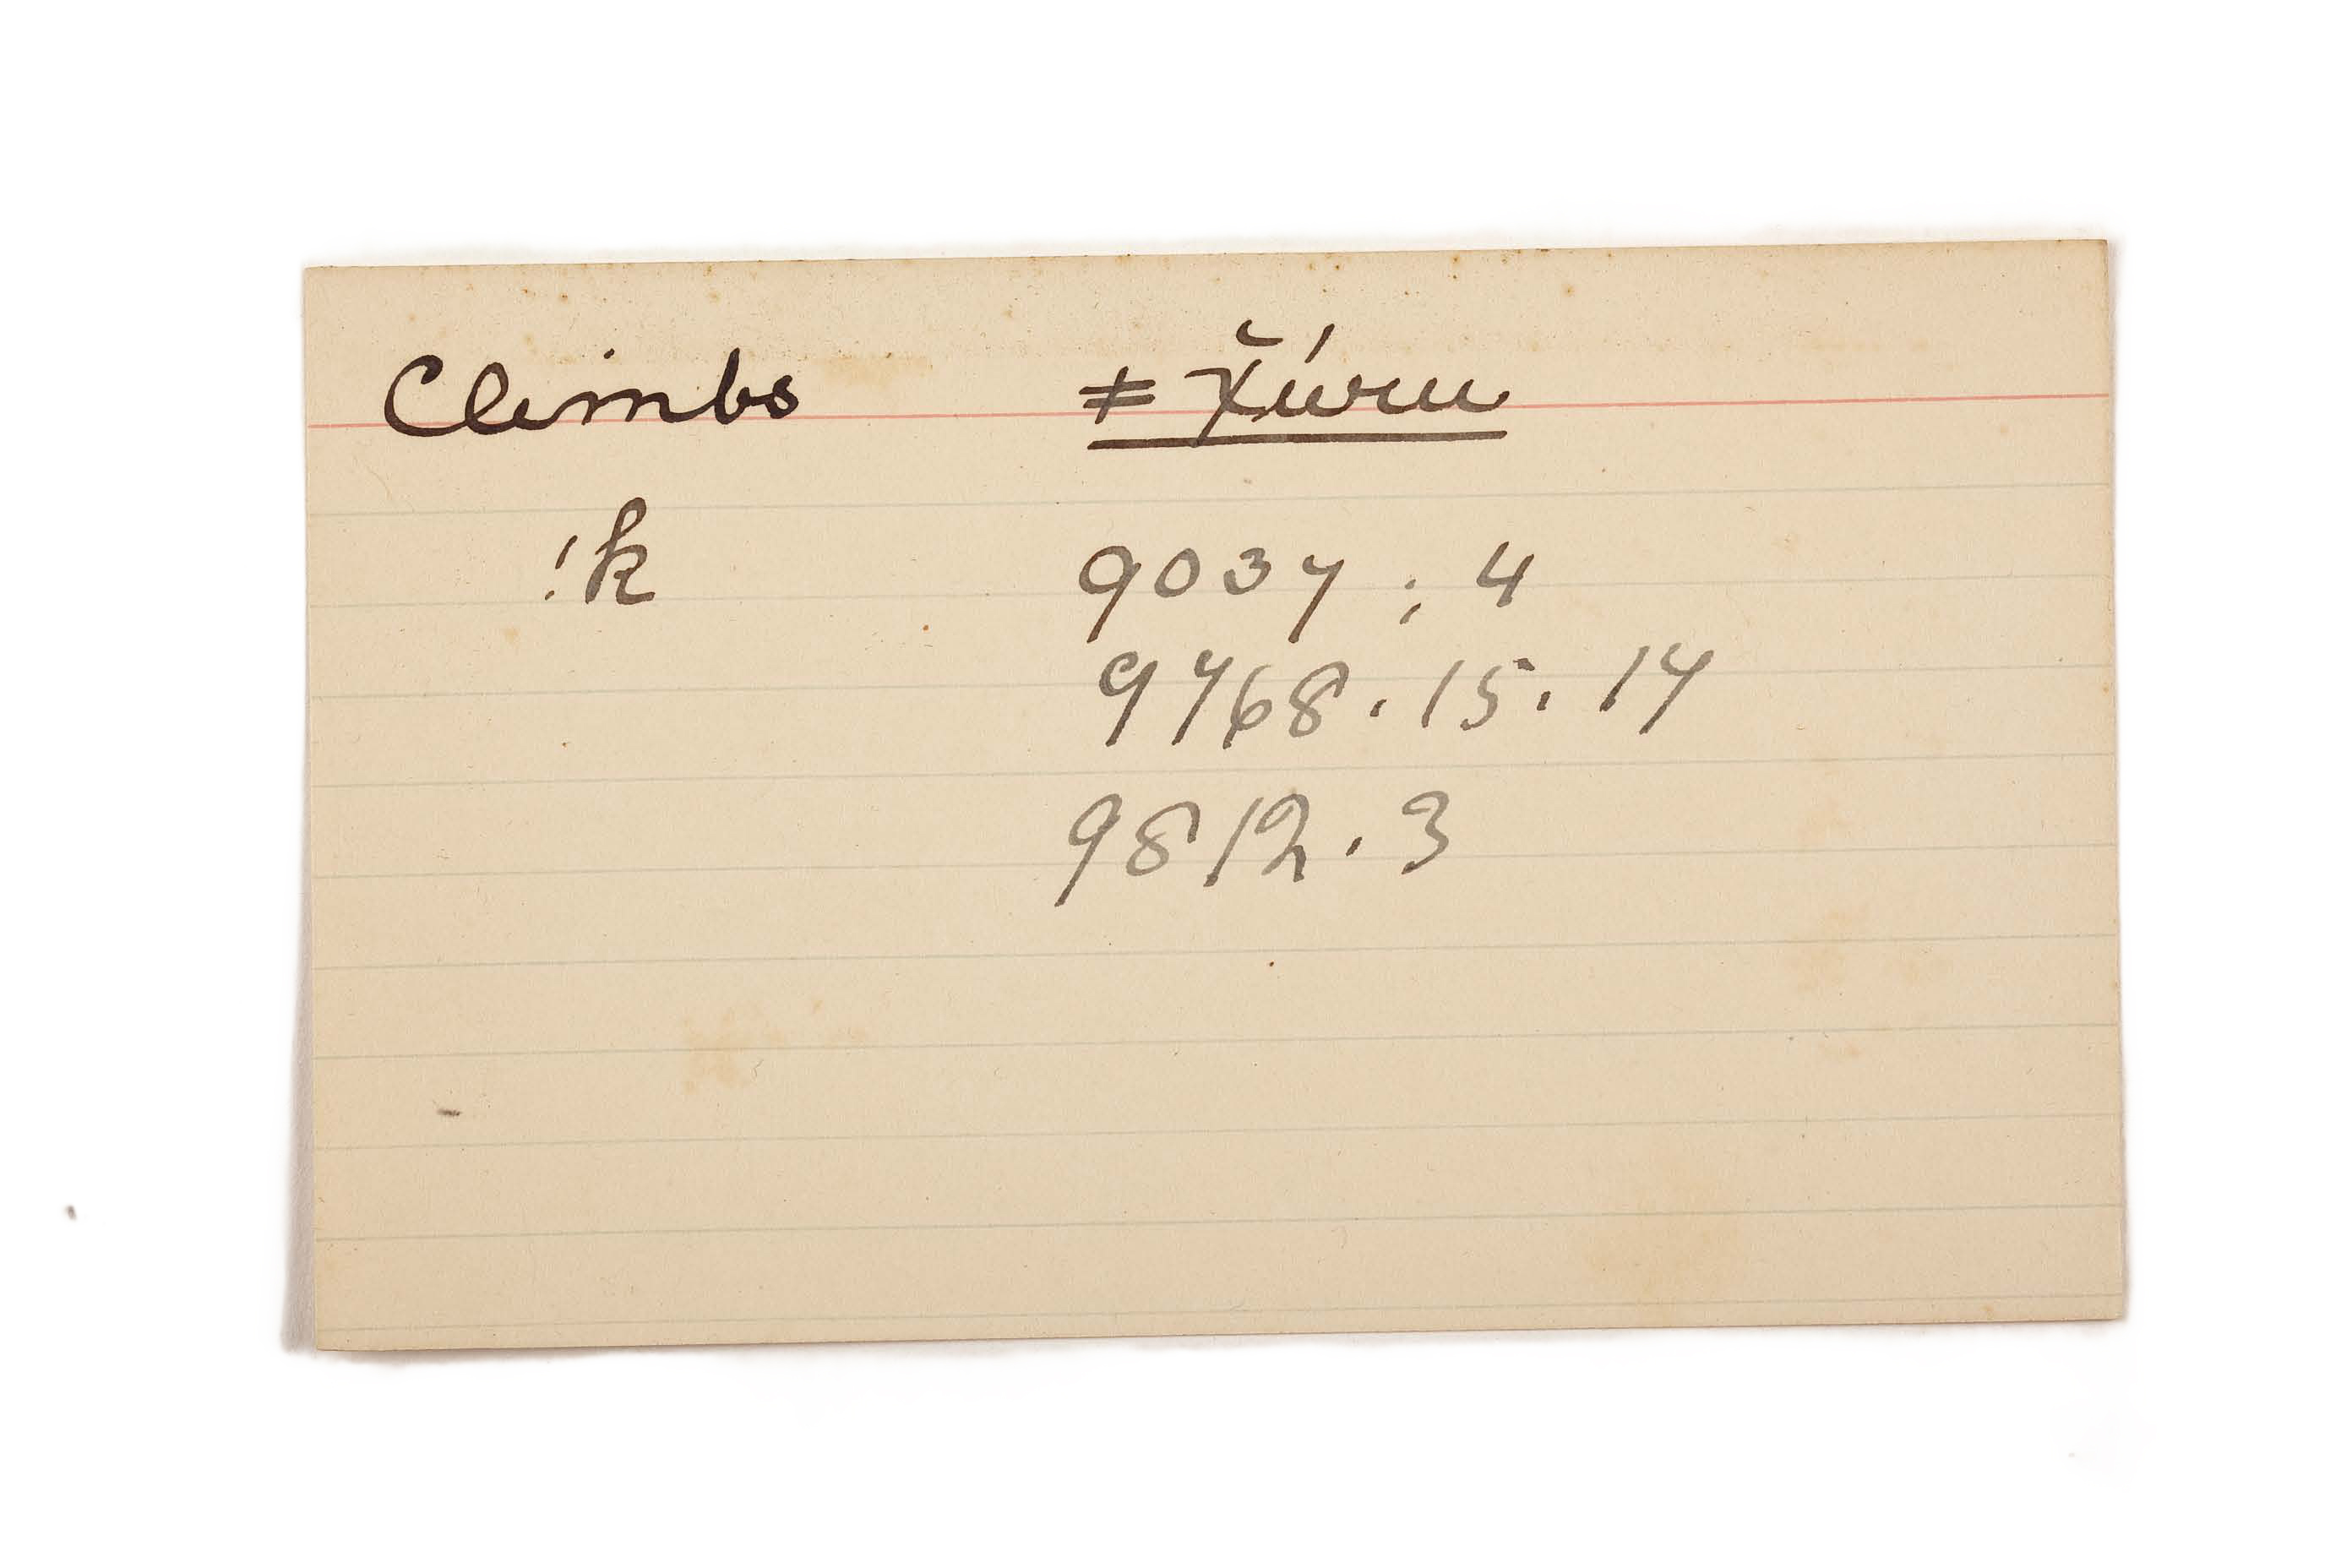 Climbs ǂχĭ́wm
!k 9037 ; 4
9768 . 15 . 17
9812 . 3